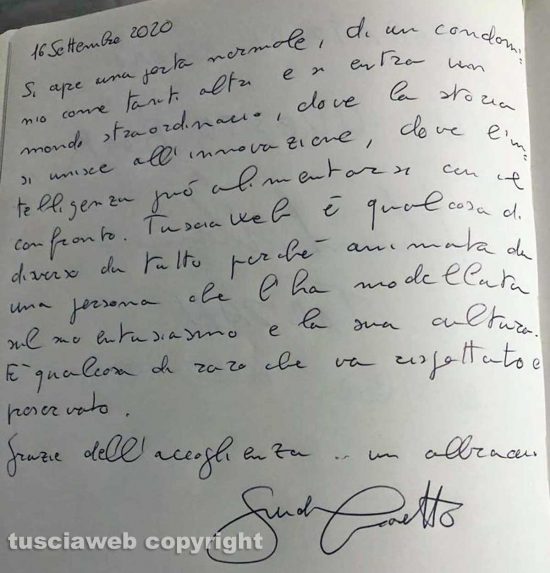 16 Settembre 2020
Si apre una porta normale, di un condomi=
nio come tanti altri e si entra in un
mondo straordinario, dove la storia
si unisce all'innovazione, dove l'in=
telligenza può alimentarsi con il
confronto. Tusciaweb è qualcosa di
diverso da tutto perché animata da
una persona che l'ha modellata
sul suo entusiasmo e la sua cultura.
È qualcosa di raro che va rispettato e
preservato.
Grazie dell'accoglienza .. un abbraccio
tusciaweb copyright